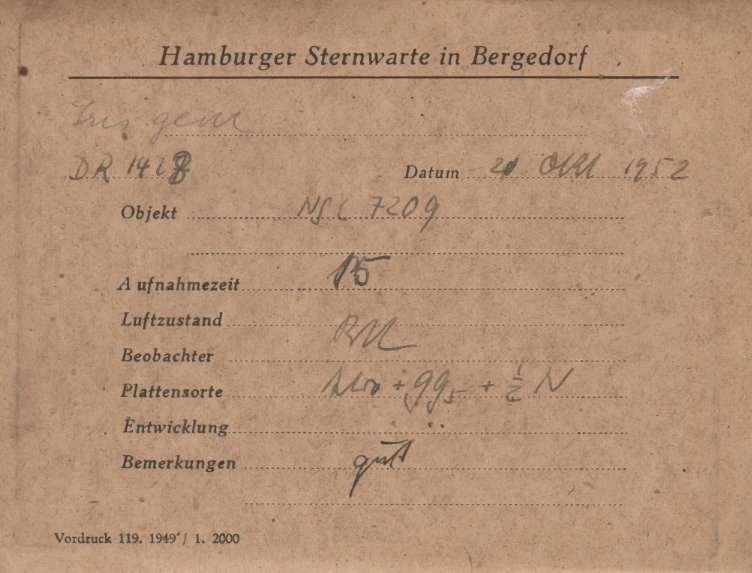 Hamburger Sternwarte in Bergedorf
DR 1428 Datum 21 Okt 1952
Objekt NGC 7209
Aufnahmezeit 15
Luftzustand
Beobachter
Plattensorte + gg5 + 1/2 N
Entwicklung
Bemerkungen gut
Vordruck 119. 1949 / 1. 2000